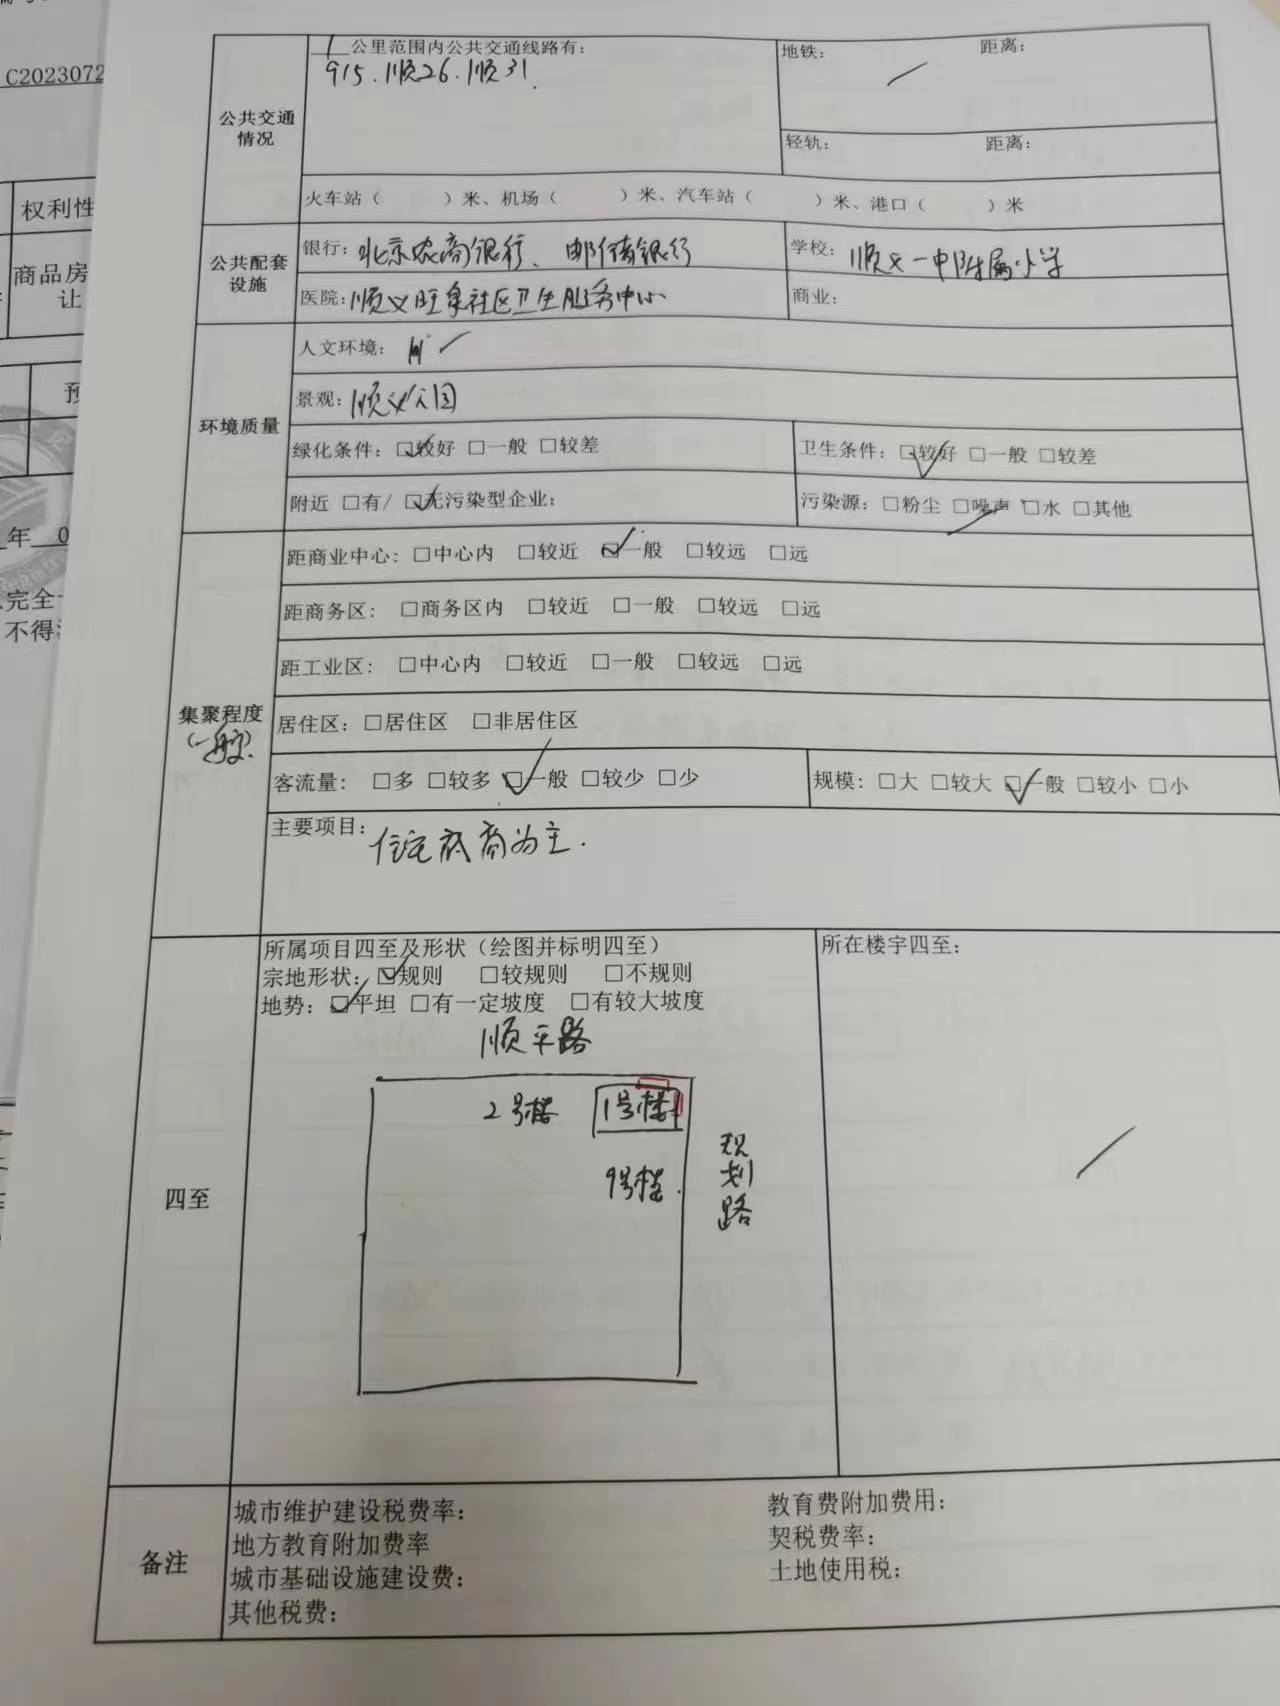 C2023072
权利性
商品房
让
预
年 0
完全
不得
公共交通
情况
1 公里范围内公共交通线路有：
915.顺26.顺31.
地铁： 距离：
轻轨： 距离：
火车站（ ）米、机场（ ）米、汽车站（ ）米、港口（ ）米
公共配套
设施
银行：北京农商银行、邮储银行
学校：顺义一中附属小学
医院：顺义旺泉社区卫生服务中心
商业：
环境质量
人文环境：
景观：顺义公园
绿化条件：☑较好 □一般 □较差
卫生条件：☑较好 □一般 □较差
附近 □有/ ☑无污染型企业：
污染源：□粉尘 □噪声 □水 □其他
集聚程度
（一般）
距商业中心：□中心内 □较近 ☑一般 □较远 □远
距商务区：□商务区内 □较近 □一般 □较远 □远
距工业区：□中心内 □较近 □一般 □较远 □远
居住区：□居住区 □非居住区
客流量：□多 □较多 ☑一般 □较少 □少
规模：□大 □较大 ☑一般 □较小 □小
主要项目：住宅底商为主.
四至
所属项目四至及形状（绘图并标明四至）
宗地形状：☑规则 □较规则 □不规则
地势：☑平坦 □有一定坡度 □有较大坡度
所在楼宇四至：
顺平路
2号楼 1号楼
9号楼
规划路
备注
城市维护建设税费率：
教育费附加费用：
地方教育附加费率
契税费率：
城市基础设施建设费：
土地使用税：
其他税费：